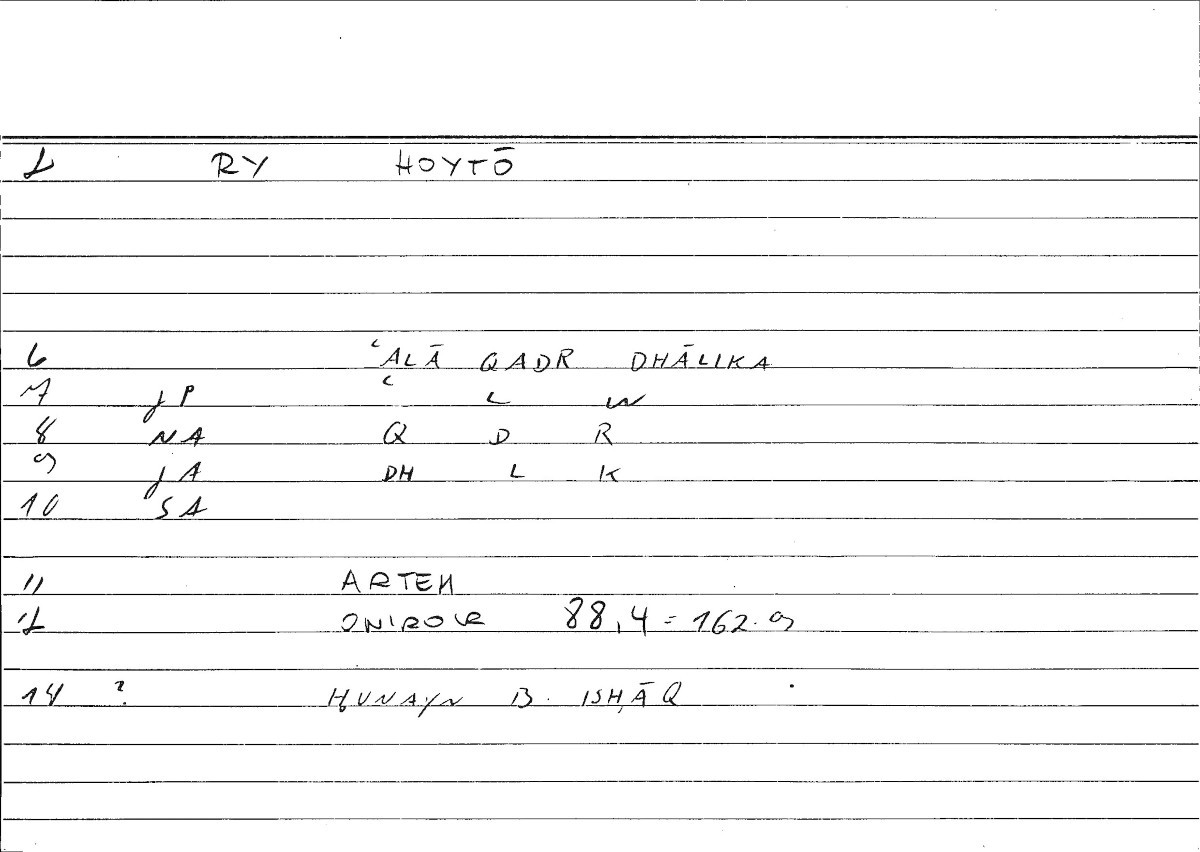 2 RY HOYTŌ
6 ʿALĀ QADR DHĀLIKA
7 jP ʿ L W
8 NA Q D R
9 jA DH L K
10 SA
11 ARTEM
12 ONIROCR 88,4 = 162.9
14 ? ḤUNAYN B. ISḤĀQ